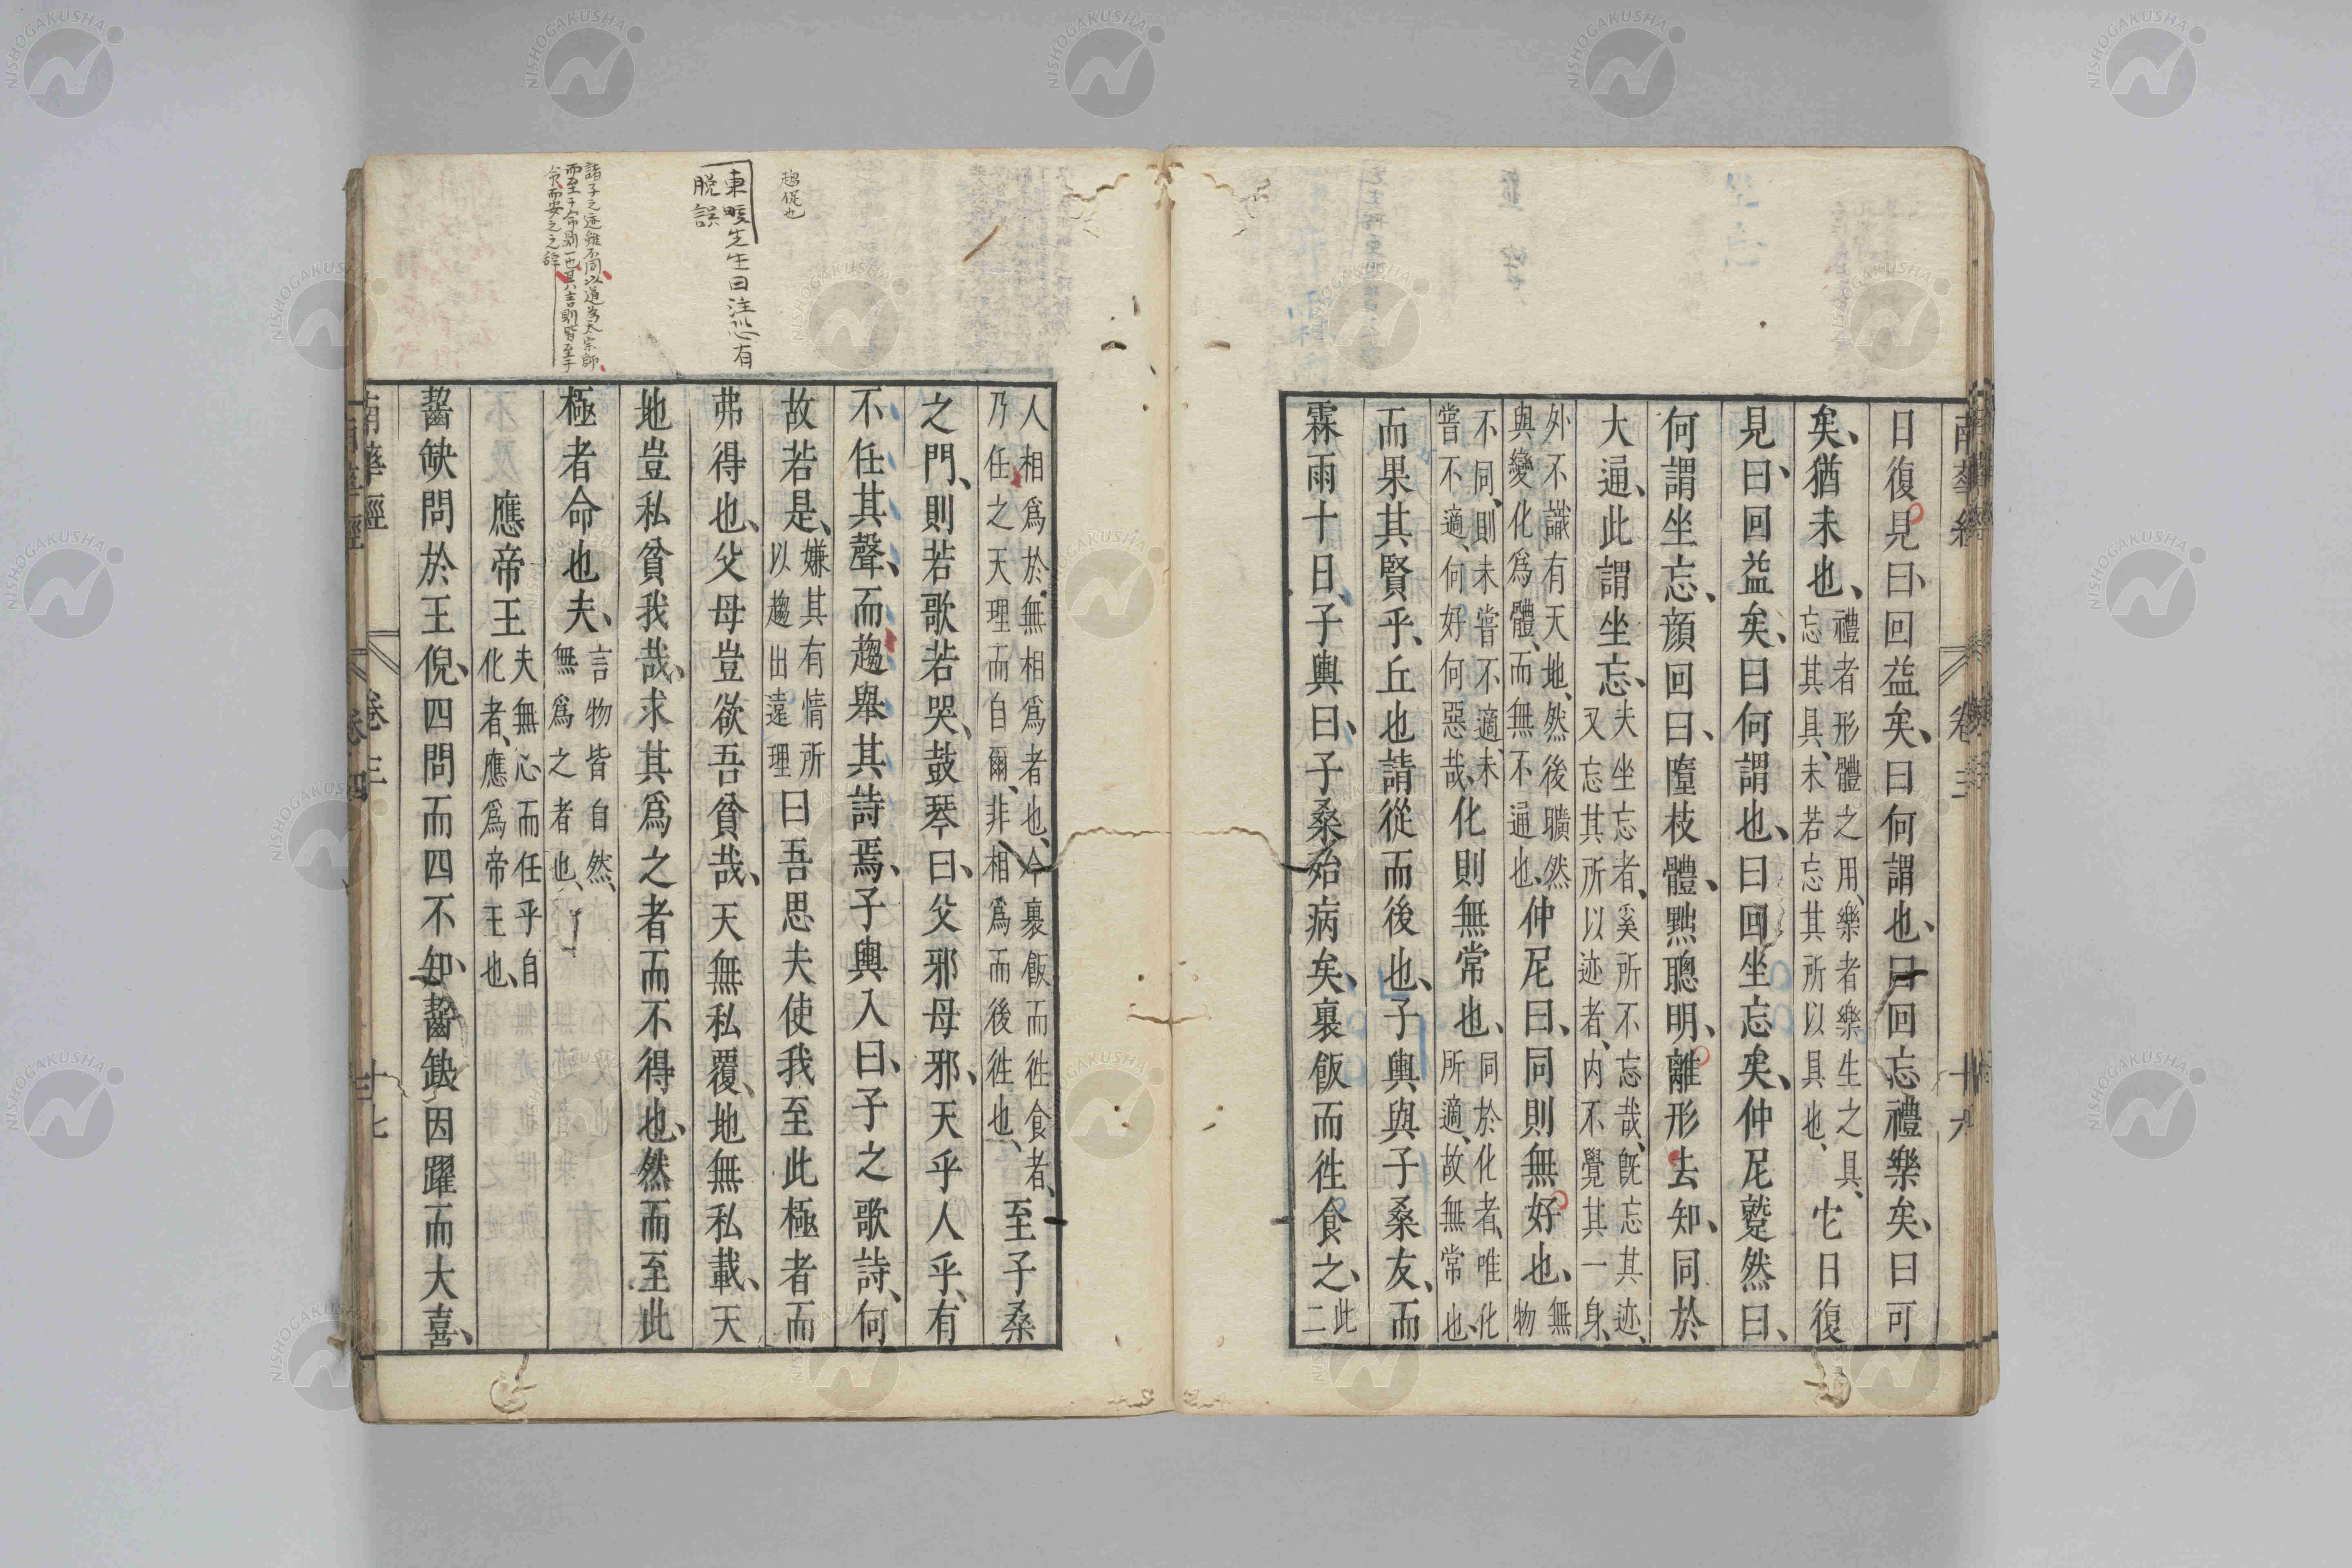 南華經 卷三 十六
日復見曰、回益矣、曰何謂也、曰回忘禮樂矣、曰可
矣、猶未也、禮者形體之用、樂者樂生之具、忘其具、未若忘其所以具也、它日復
見曰、回益矣、曰何謂也、曰回坐忘矣、仲尼蹵然曰、
何謂坐忘、顔回曰、墮枝體、黜聰明、離形去知、同於
大通、此謂坐忘、夫坐忘者、奚所不忘哉、旣忘其迹、又忘其所以迹者、内不覺其一身、
外不識有天地、然後曠然與變化爲體、而無不通也、仲尼曰、同則無好也、無物
不同、則未嘗不適、未嘗不適、何好何惡哉、化則無常也、同於化者、唯化所適、故無常也、
而果其賢乎、丘也請從而後也、子輿與子桑友、而
霖雨十日、子輿曰、子桑殆病矣、裹飯而徃食之、此二
人相爲於無相爲者也、今裹飯而徃食者、乃任之天理而自爾、非相爲而後徃也、至子桑
之門、則若歌若哭、鼓琴曰、父邪母邪、天乎人乎、有
不任其聲、而趨舉其詩焉、子輿入曰、子之歌詩、何
故若是、嫌其有情所以趨出遠理曰吾思夫使我至此極者而
弗得也、父母豈欲吾貧哉、天無私覆、地無私載、天
地豈私貧我哉、求其爲之者而不得也、然而至此
極者命也夫、言物皆自然、無爲之者也、
應帝王夫無心而任乎自化者、應爲帝王也、
齧缺問於王倪、四問而四不知、齧缺因躍而大喜、
南華經 卷三 十七
趨促也
東畡先生曰注恐有
脱誤
諸子之迹雖不同、以道爲大宗師、
而至于命則一也其言則皆至于
命而安之之辞